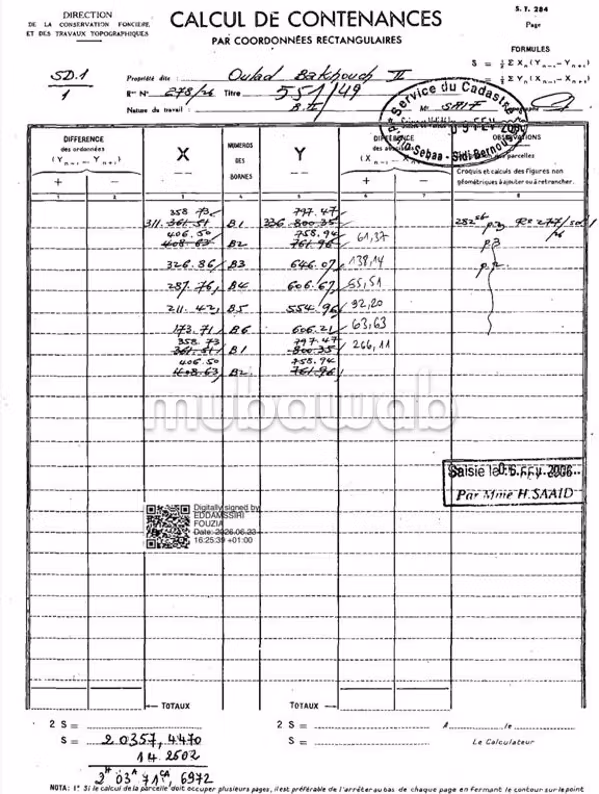 DIRECTION
DE LA CONSERVATION FONCIÈRE
ET DES TRAVAUX TOPOGRAPHIQUES
S. T. 284
Page
CALCUL DE CONTENANCES
PAR COORDONNÉES RECTANGULAIRES
FORMULES
S = ½ Σ Xn (Yn-1 — Yn+1)
= ½ Σ Yn (Xn-1 — Xn+1)
SD.1
1
Propriété dite : Oulad Bakhouch II
Ron N° 278/26 Titre 551/49
Nature du travail : B.II
Mr SAIF
Service du Cadastre
09 FEV 200
Sebaa - Sidi Bernou
DIFFÉRENCE
des ordonnées
(Yn-1 — Yn+1)
+ —
X
NUMÉROS
DES
BORNES
Y
DIFFÉRENCE
(Xn-1 — Xn+1)
+ —
OBSERVATIONS
des parcelles
Croquis et calculs des figures non
géométriques à ajouter ou à retrancher.
1 2 3 4 5 6 7 8
358 73 797.47
311. 361.51 B1 336 800.35
406.50 758.94 61,37
408.63 B2 761.96
p.3
326.86 B3 646.07 138,14
p.2
287.76 B4 606.67 55,51
211.42 B5 554.96 92,20
173.71 B6 606.21 63,63
358.73 797.47 266,11
361.51 B1 800.35
406.50 758.94
408.63 B2 761.96
mubawab
Saisie le 06 FEV 2006
Par Mme H. SAAID
Digitally signed by
EDDAMSSIRI
FOUZIA
Date: 2026.06.23
16:25:39 +01:00
← TOTAUX TOTAUX →
2 S = 2 S = A le
S = 20357,4470 S = Le Calculateur
14.2502
2H 03A 71CA, 6972
NOTA : 1° Si le calcul de la parcelle doit occuper plusieurs pages, il est préférable de l'arrêter au bas de chaque page en fermant le contour sur le point